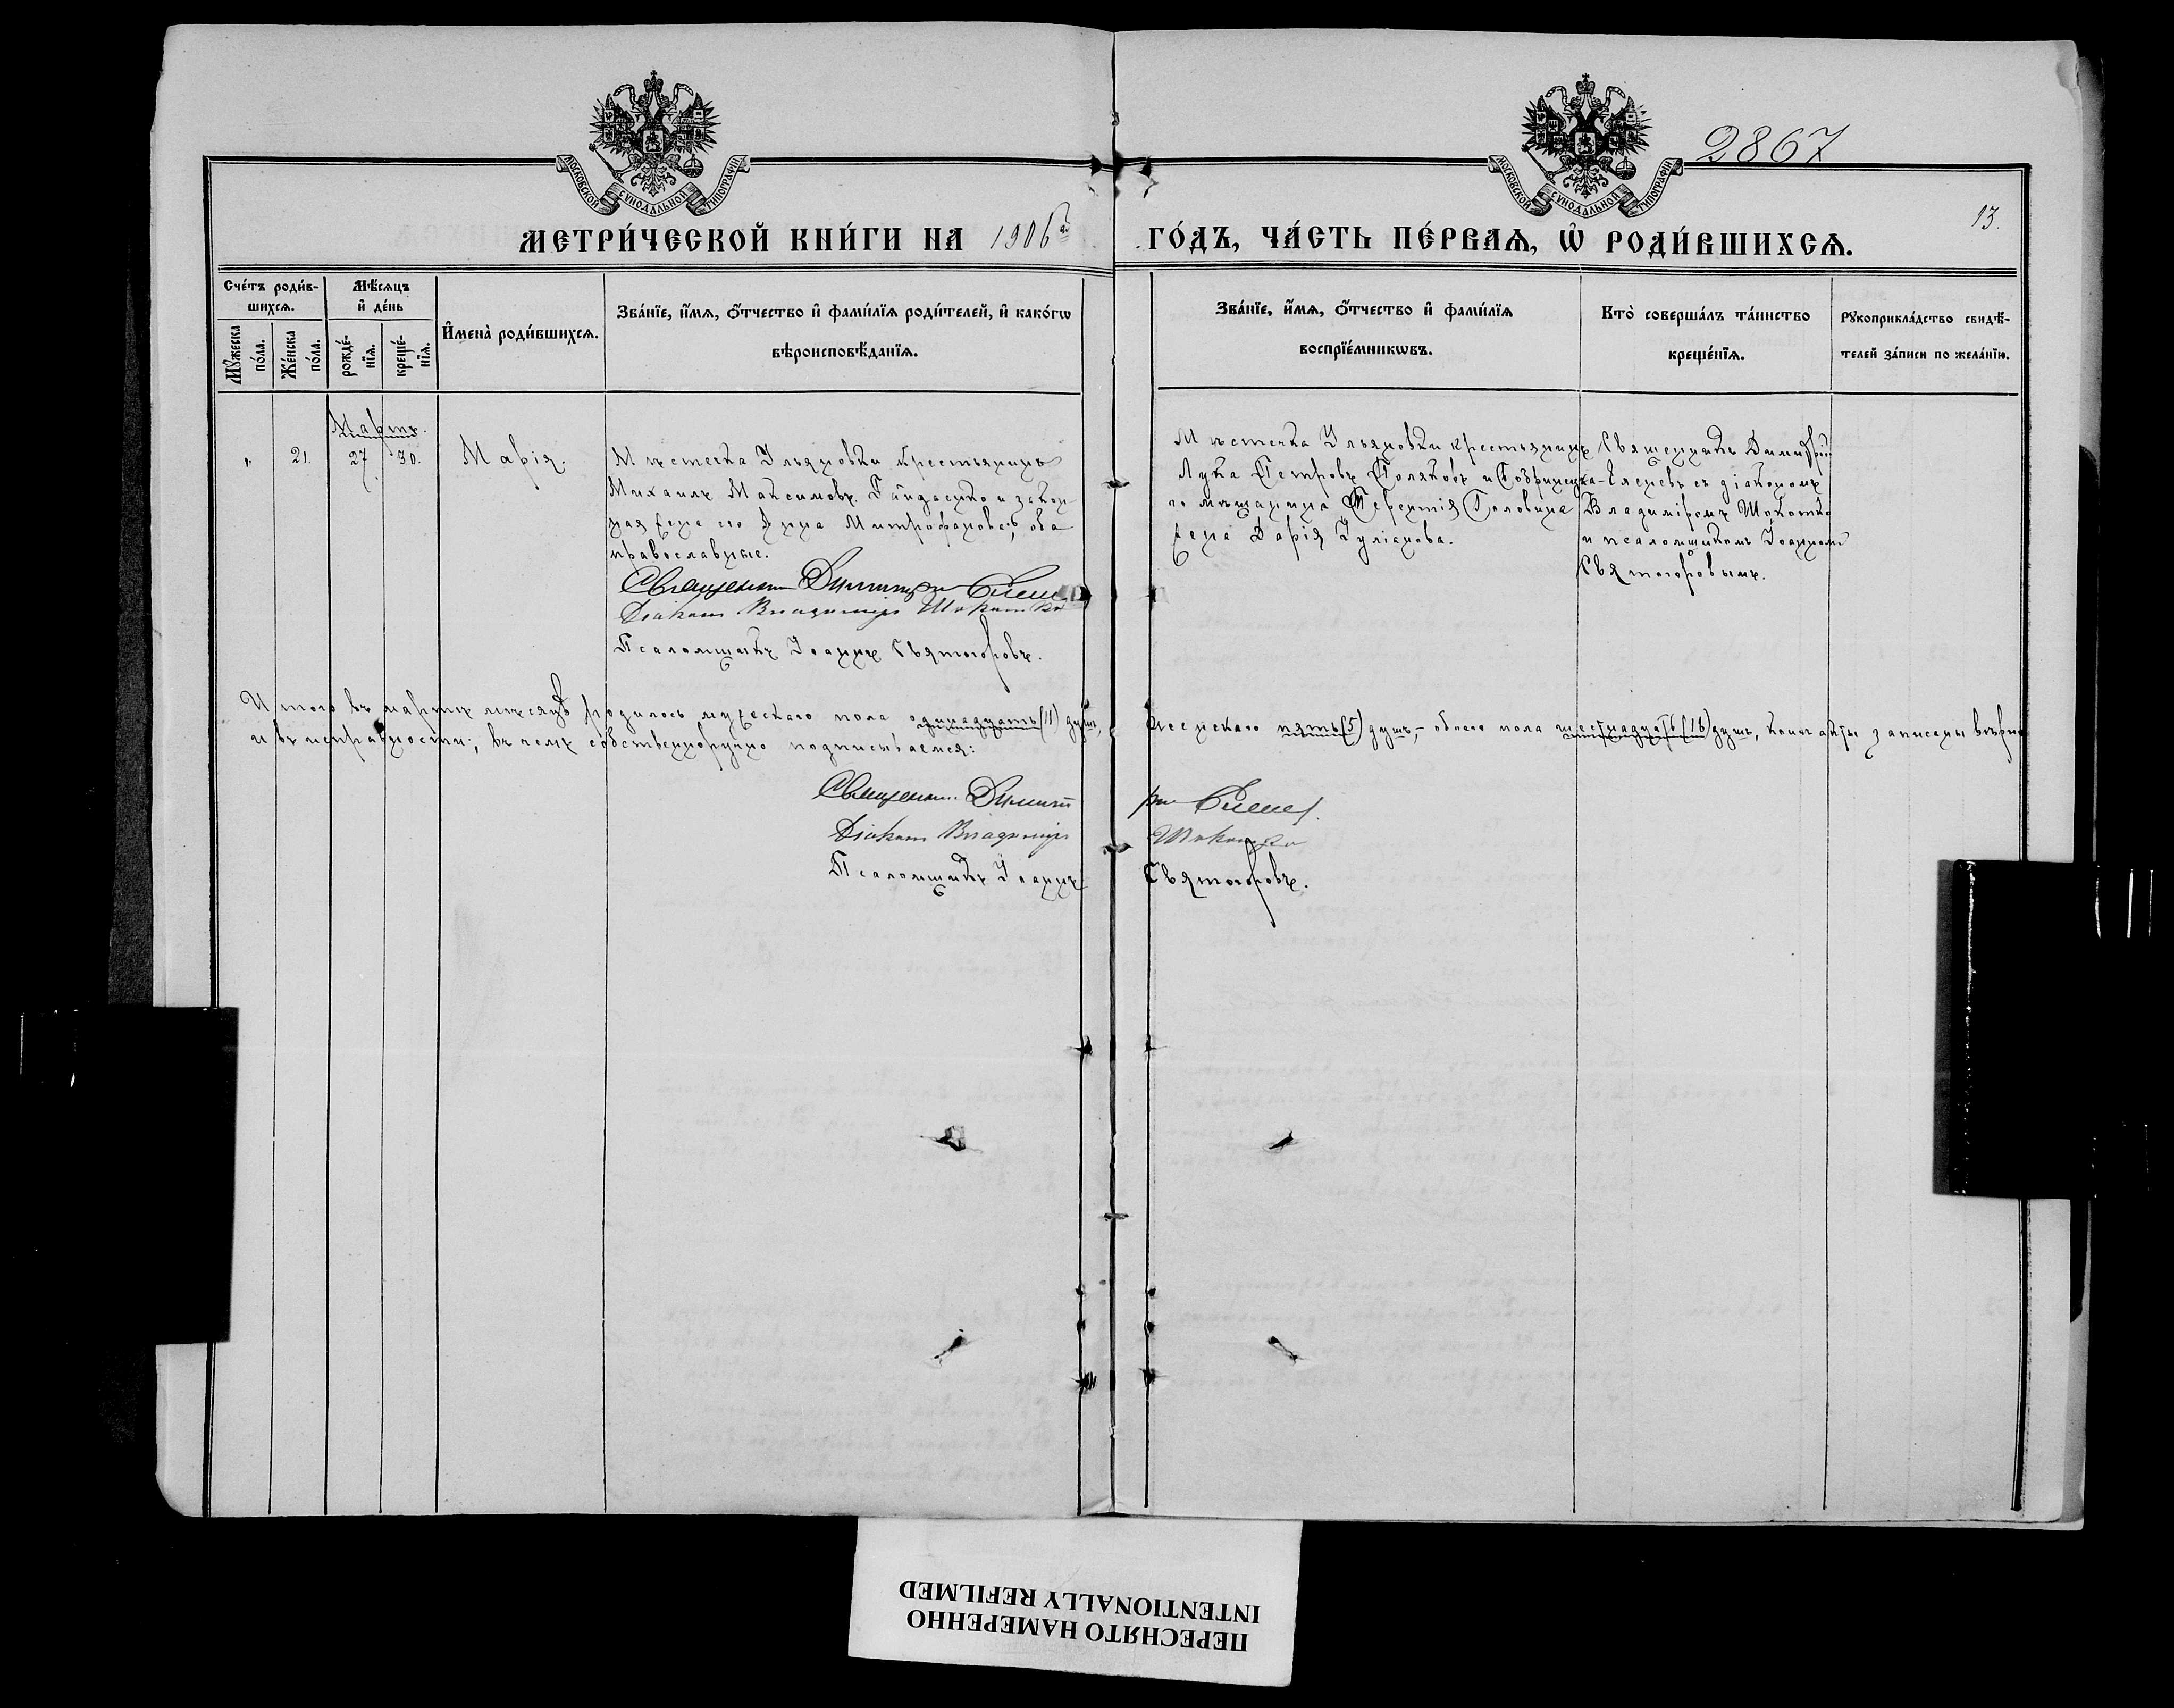 МОСКОВСКОЙ СѴНОДАЛЬНОЙ ТИПОГРАФІИ
МОСКОВСКОЙ СѴНОДАЛЬНОЙ ТИПОГРАФІИ
2867
13.
МЕТРИ́ЧЕСКОЙ КНИ́ГИ НА 1906й ГО́ДЪ, ЧА́СТЬ ПЕ́РВАѦ, Ѡ҆ РОДИ́ВШИХСѦ.
Сче́тъ роди́в-
шихсѧ.
Мѣ́сѧцъ
и҆ де́нь
Мꙋ́жеска
по́ла.
Же́нска
по́ла.
рожде́-
нїѧ.
креще́-
нїѧ.
И҆мена̀ роди́вшихсѧ.
Зва́нїе, и҆́мѧ, ѻ҆́тчество и҆ фами́лїѧ роди́телей, и҆ како́гѡ
вѣроисповѣ́данїѧ.
Зва́нїе, и҆́мѧ, ѻ҆́тчество и҆ фами́лїѧ
воспрїе́мникѡвъ.
Кто̀ соверша́лъ та́инство
креще́нїѧ.
Рꙋкоприкла́дство свидѣ́-
телей за́писи по жела́нїю.
Мартъ.
" 21. 27 30. Марія.
Мѣстечка Ульяновки крестьянинъ
Михаилъ Максимовъ Гайдасико и закон
ная жена его Анна Митрофанова; оба
православные.
Священникъ Димитрій
Діаконъ Владиміръ Шокотко
Псаломщикъ Іоаннъ Святогоровъ.
Мѣстечка Ульяновки крестьянинъ
Лука Петровъ Поляковъ и
го мѣщанина Терентія Головина
жена Дарія Іуліанова.
Священникъ Димитрій
съ діакономъ
Владиміромъ Шокотко
и псаломщикомъ Іоанномъ
Святогоровымъ.
Итого въ мартѣ мѣсяцѣ родилось мужескаго пола одинадцать (11) душъ, женскаго пять (5) душъ, обоего пола шестнадцать (16) душъ, коихъ акты записаны вѣрно
и въ исправности; въ чемъ собственноручно подписываемся:
Священникъ Димитрій
Діаконъ Владиміръ Шокотко
Псаломщикъ Іоаннъ Святогоровъ.
ПЕРЕСНЯТО НАМЕРЕННО
INTENTIONALLY REFILMED